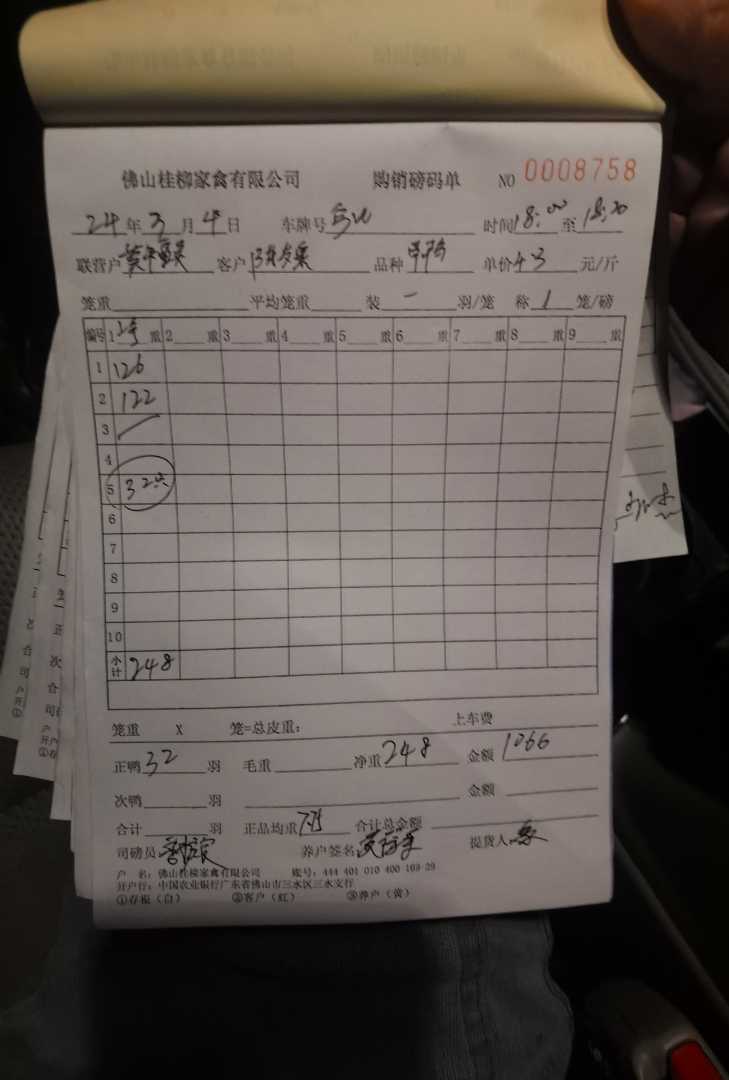 佛山桂柳家禽有限公司 购销磅码单 NO 0008758
24年3月4日 车牌号 时间18:00至18:20
联营户 客户 品种 单价43元/斤
笼重 平均笼重 装一羽/笼 称1笼/磅
编号 1 重 2 重 3 重 4 重 5 重 6 重 7 重 8 重 9 重
1 126
2 122
3
4
5 32只
6
7
8
9
10
小计 248
笼重 X 笼=总皮重: 上车费
正鸭32羽 毛重 净重248 金额1066
次鸭 羽 金额
合计 羽 正品均重 合计总金额
司磅员 养户签名 提货人
户 名:佛山桂柳家禽有限公司 账号:444 401 010 400 169 29
开户行:中国农业银行广东省佛山市三水区三水支行
①存根(白) ②客户(红) ③养户(黄)